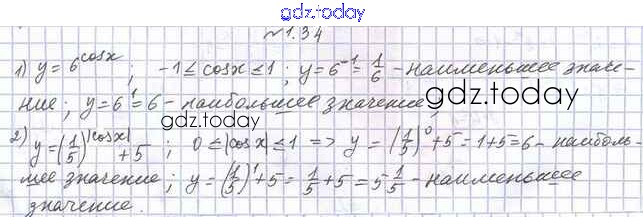 gdz.today
№1.34
1) y = 6^cosx ; -1 ≤ cosx ≤ 1 ; y = 6^-1 = 1/6 - наименьшее значе-
ние ; y = 6^1 = 6 - наибольшее значение ;
gdz.today
gdz.today
2) y = (1/5)^|cosx| + 5 ; 0 ≤ |cosx| ≤ 1 => y = (1/5)^0 + 5 = 1 + 5 = 6 - наиболь-
шее значение ; y = (1/5)^1 + 5 = 1/5 + 5 = 5 1/5 - наименьшее
значение.